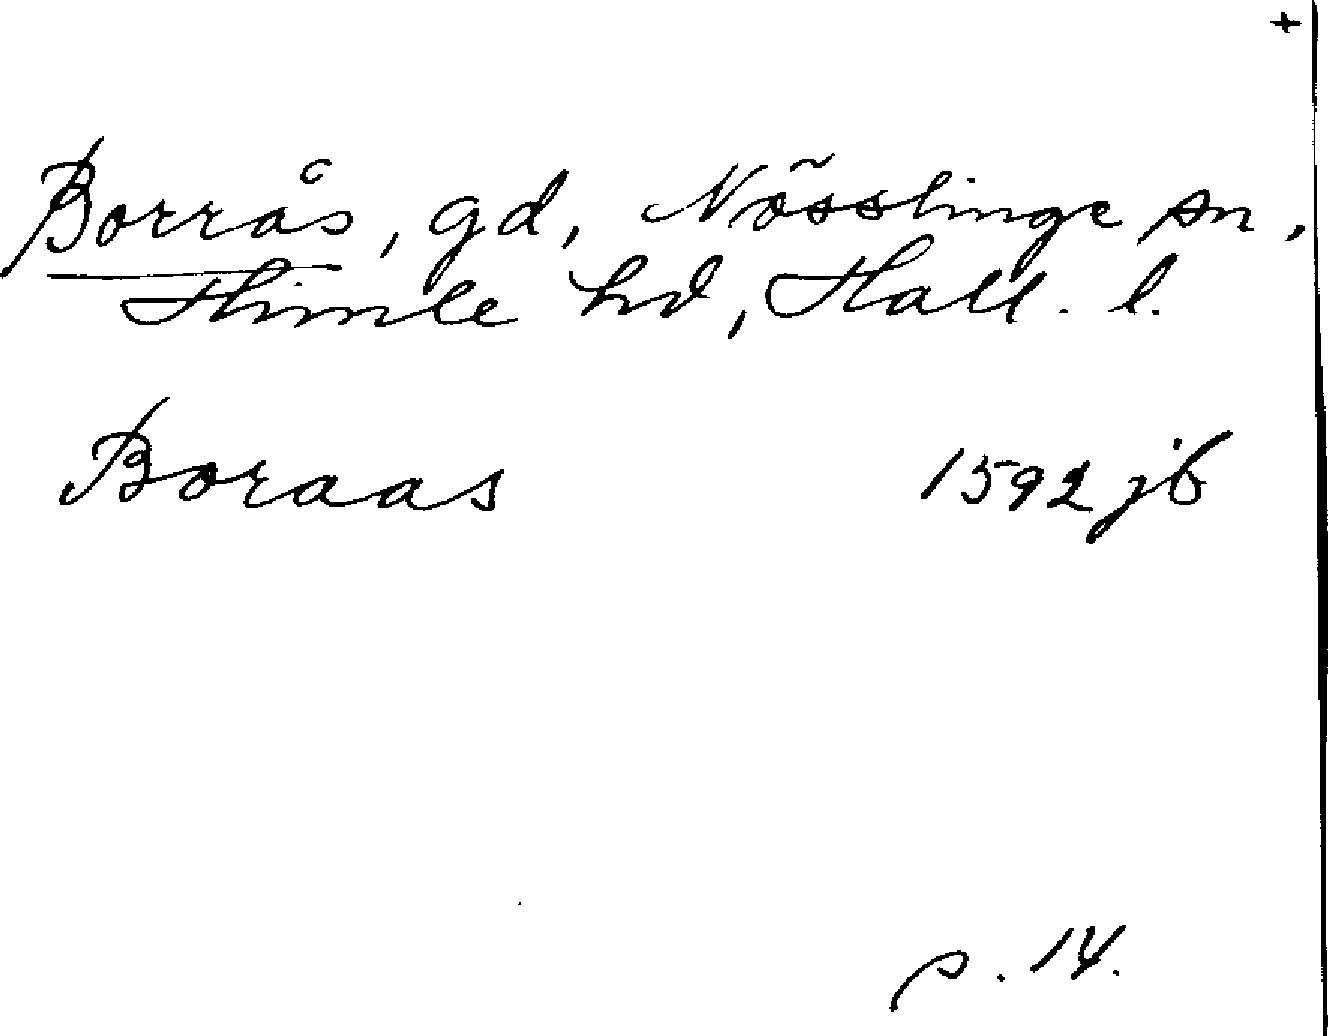 +
Borrås, gd, Nösslinge sn,
Himle hd, Hall. l.
Boraas 1592 jb
p. 14.